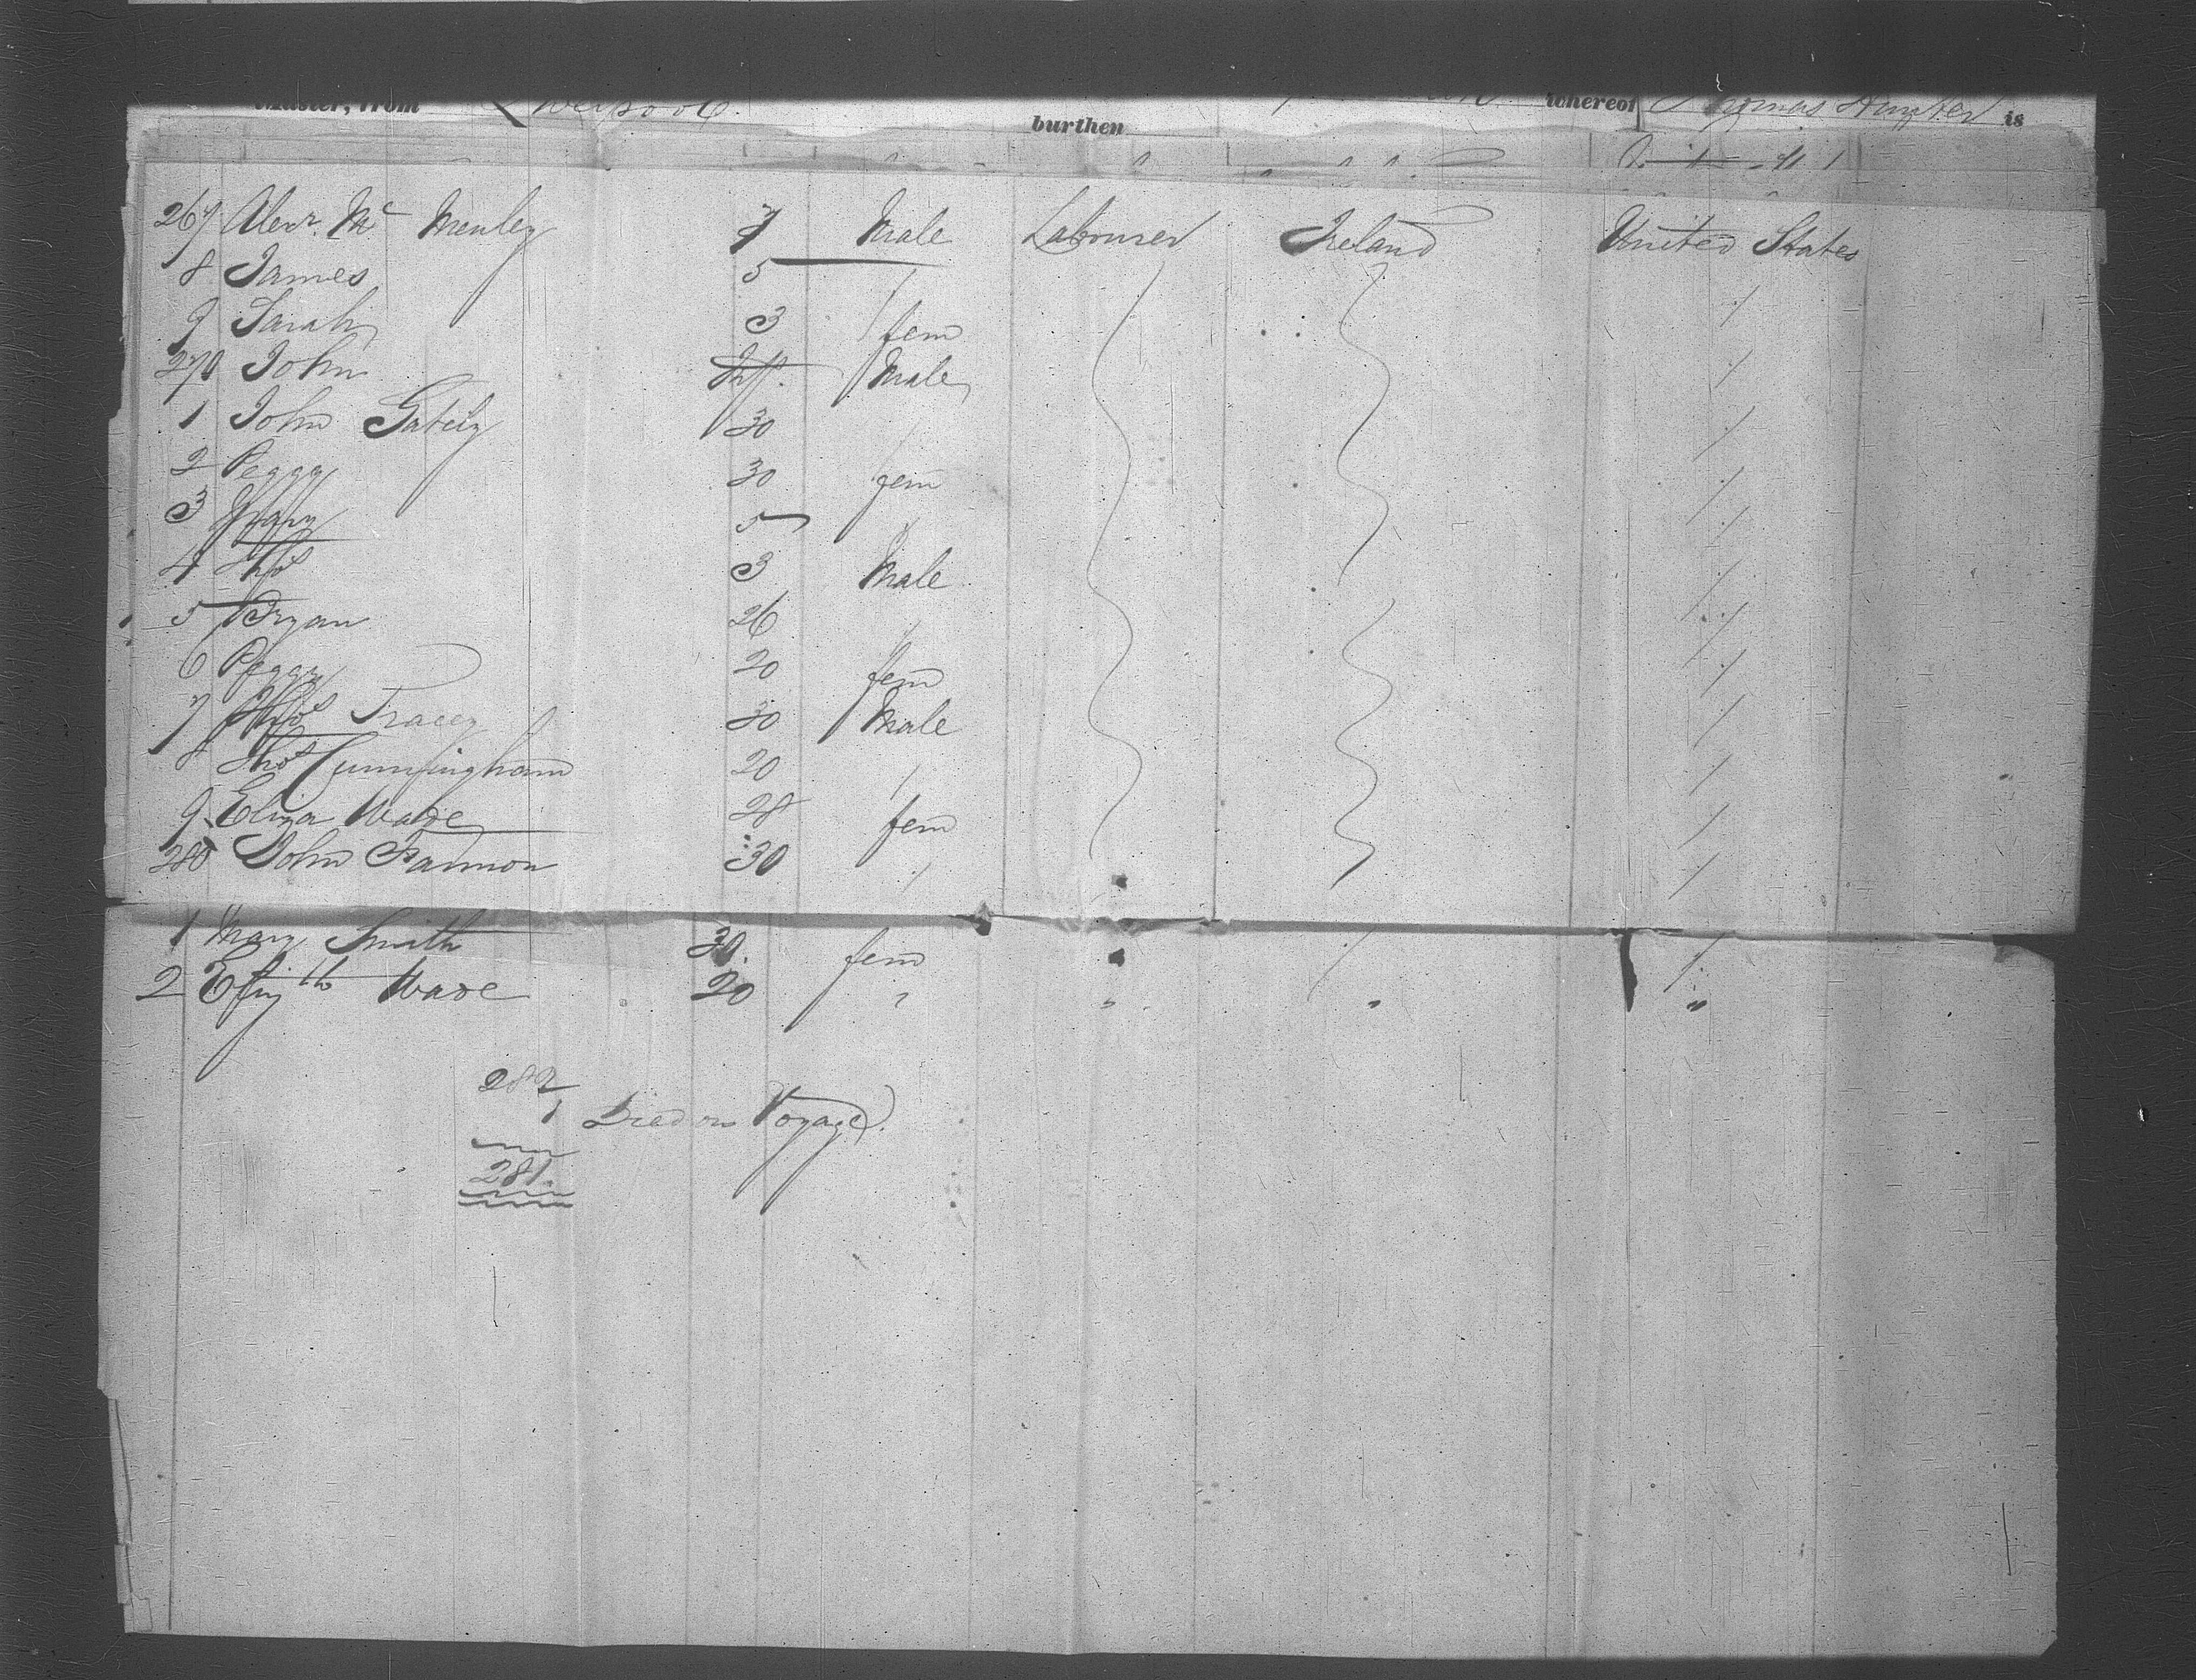 Master, from Liverpool. burthen whereof Thomas Hunter is
267 Alexr. Mc Menley 7 Male Labourer Ireland United States
8 James 5 /
9 Sarah 3 fem /
270 John Inft. Male /
1 John Gately 30 /
2 Peggy 30 fem /
3 Mary 5 " /
4 Thos 3 Male /
5 Bryan 26 " /
6 Peggy 20 fem /
7 Thos Tracey 30 Male /
8 Thos Cunningham 20 / /
9 Eliza Wade 28 fem /
280 John Fannon 30 / /
1 Mary Smith 30. fem / /
2 Elizth Wade 20 " " " "
282
1 Died on Voyage.
281.